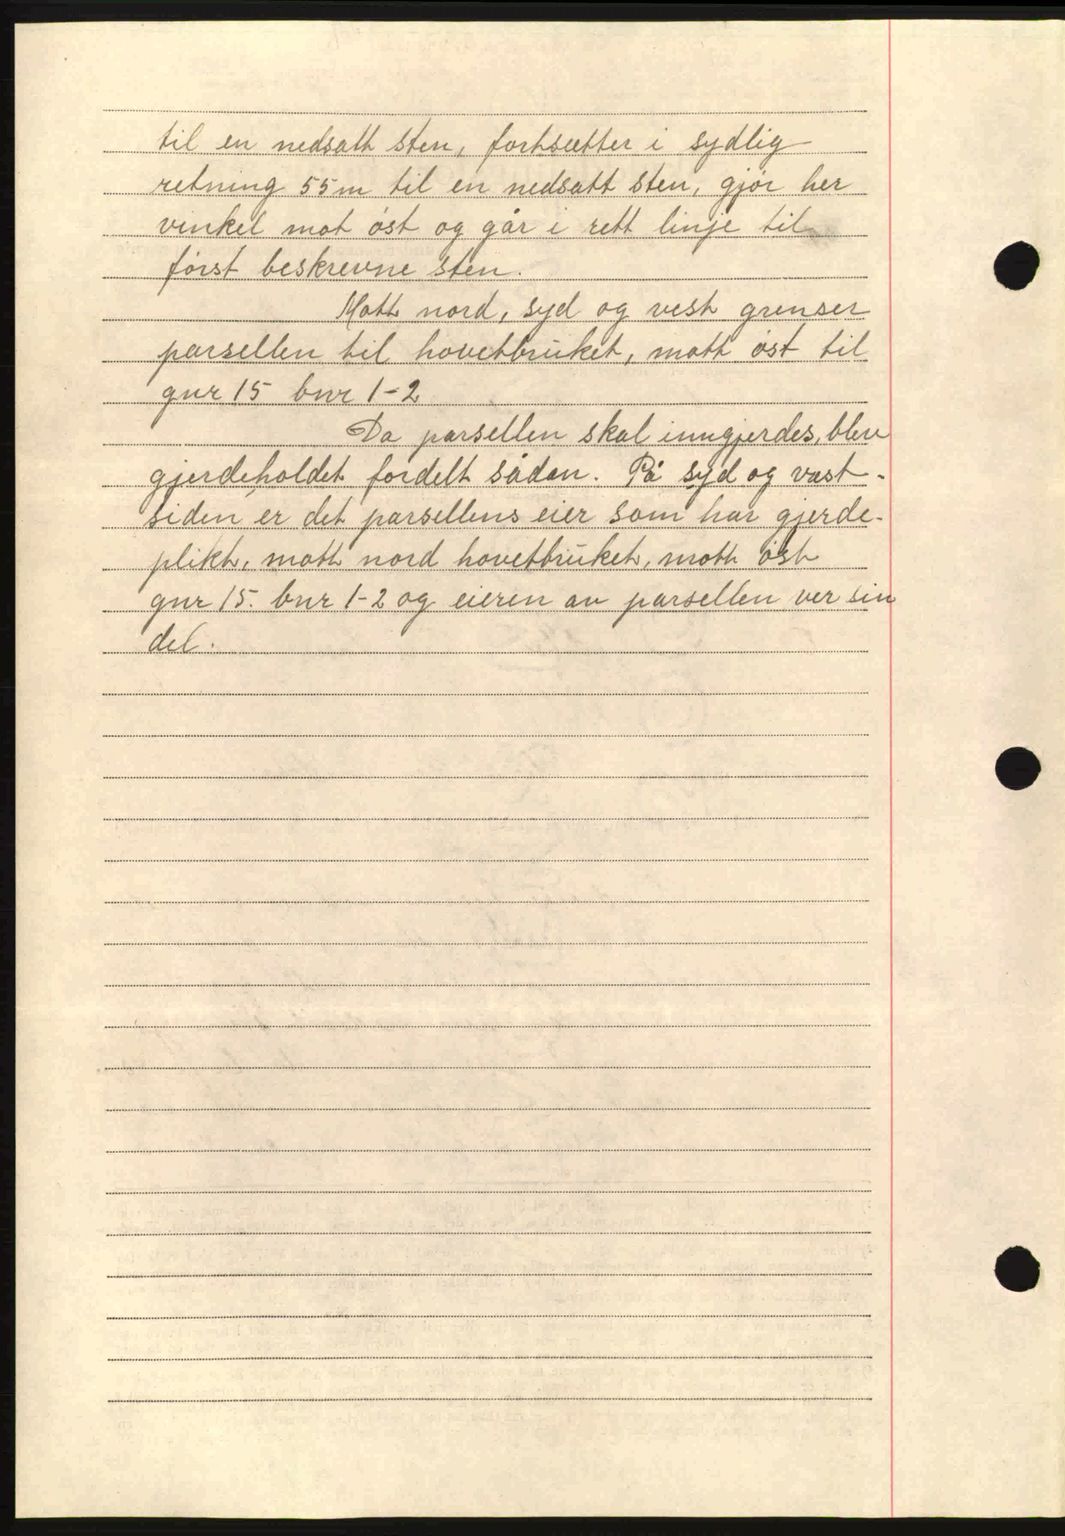 til en nedsatt sten, fortsætter i sydlig
retning 55m til en nedsatt sten, gjør her
vinkel mot øst og går i rett linje til
først beskrevne sten.
Mott nord, syd og vest grenser
parsellen til hovetbruket, mott øst til
gnr 15 bnr 1-2
Da parsellen skal inngjerdes, blev
gjerdeholdet fordelt sådan. På syd og vest-
siden er det parsellens eier som har gjerde-
plikt, mott nord hovetbruket, mott øst
gnr 15. bnr 1-2 og eieren av parsellen ver sin
del.